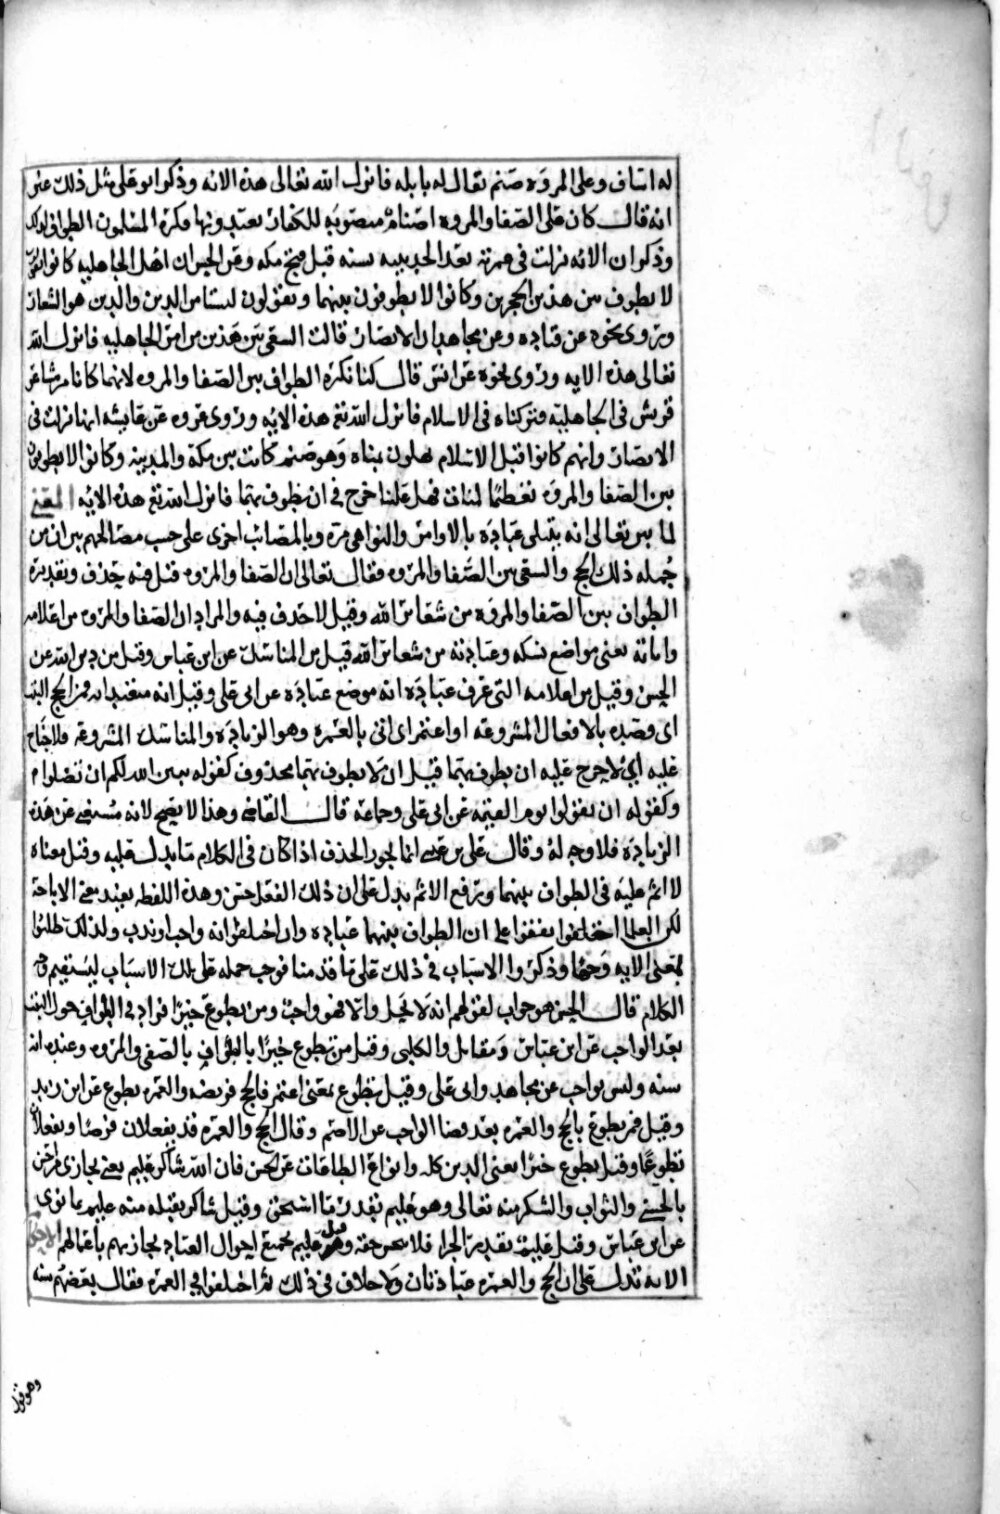 له اساف وعلى المروه صنم يقال له نايله فانزل الله تعالى هذه الايه وذكر ابو علي مثل ذلك عن
انه قال كان على الصفا والمروه اصنام منصوبه للكفار يعبدونها فكره المسلمون الطواف لذلك
وذكر ان الايه نزلت في عمرة بعد الحديبيه بسنه قبل فتح مكه وعن الحسن ان اهل الجاهليه كانوا
لا يطوف بين هذين الحجرين وكانوا لا يطوفون بينهما ويقولون ليسا من الدين والدين هو الشعار
وروى نحوه عن قتاده وعن مجاهد ان الانصار قالت السعي بين هذين من امر الجاهليه فانزل الله
تعالى هذه الايه وروى نحوه عن انس قال كنا نكره الطواف بين الصفا والمروه لانهما كانا من مشاعر
قريش في الجاهليه فتركناه في الاسلام فانزل الله تع هذه الايه وروى عروه عن عايشه انها نزلت في
الانصار وانهم كانوا قبل الاسلام يهلون بمناه وهو صنم كانت بين مكة والمدينه وكانوا لا يطوفون
بين الصفا والمروه تعظيما لمناة فهل علينا حرج في ان نطوف بهما فانزل الله تع هذه الايه المعنى
لما بين تعالى انه يبتلي عباده بالاوامر والنواهي مره وبالمصائب اخرى على حسب مصالحهم بين ان من
جمله ذلك الحج والسعي بين الصفا والمروه فقال تعالى ان الصفا والمروه قيل فيه حذف وتقديره
الطواف بين الصفا والمروه من شعائر الله وقيل لا حذف فيه والمراد ان الصفا والمروه من اعلامه
واماته يعني مواضع نسكه وعبادته من شعائر الله قيل من المناسك عن ابن عباس وقيل من دين الله عن
الحسن وقيل من اعلامه التي عرف عباده انه موضع عباده عن ابي علي وقيل انه متعبداته فمن حج البيت
اي قصده بالافعال المشروعه او اعتمر اي اتى بالعمره وهو الزياره والمناسك المشروعه فلا جناح
عليه اي لا حرج عليه ان يطوف بهما قيل ان لا يطوف بهما محذوف كقوله يبين الله لكم ان تضلوا
وكقوله ان تقولوا يوم القيمة عن ابي علي وجماعه قال القاضي وهذا لا يصح لانه مستغني عن هذه
الزياده فلا وجه له وقال علي بن عيسى انما يجوز الحذف اذا كان في الكلام ما يدل عليه وقيل معناه
لا اثم عليه في الطواف بينهما ورفع الاثم يدل على ان ذلك الفعل حسن وهذه اللفظه يفيد معنى الاباحة
لكن العلما اتفقوا على ان الطواف بينهما عباده وان اختلفوا انه واجب او ندب ولذلك طلبوا
لمعنى الايه وجها وذكروا الاسباب في ذلك على ما قدمنا فوجب حمله على تلك الاسباب ليستقيم
الكلام قال الحسن هو جواب لقولهم انه لا يحل والا فهو واجب ومن تطوع خيرا فزاد في الطواف حول البيت
بعد الواجب عن ابن عباس ومقاتل والكلبي وقيل من تطوع خيرا بالطواف بالصفى والمروه وعنده انه
سنه وليس بواجب عن مجاهد وابي علي وقيل تطوع بمعنى اعتمر فالحج فريضه والعمره تطوع عن ابن زيد
وقيل فمن تطوع بالحج والعمره بعد قضا الواجب عن الاصم وقال الحج والعمره قد يفعلان فرضا ويفعلان
تطوعا وقيل تطوع خيرا يعني الدين كله وانواع الطاعات عن الحسن فان الله شاكر عليم يعني يجازى من احسن
بالحسنى والثواب والشكر منه تعالى وهو عليم بقدر ما استحق وقيل شاكر يقبله منه عليم بما نوى
عن ابن عباس وقيل عليم بقدر الجزا فلا يبخس حقه وقيل عليم بجميع احوال العباد يجازيهم باعمالهم الاحكام
الايه تدل على ان الحج والعمره عبادتان ولا خلاف في ذلك ثم اختلفوا في العمره فقال بعضهم سنه
وهو قول